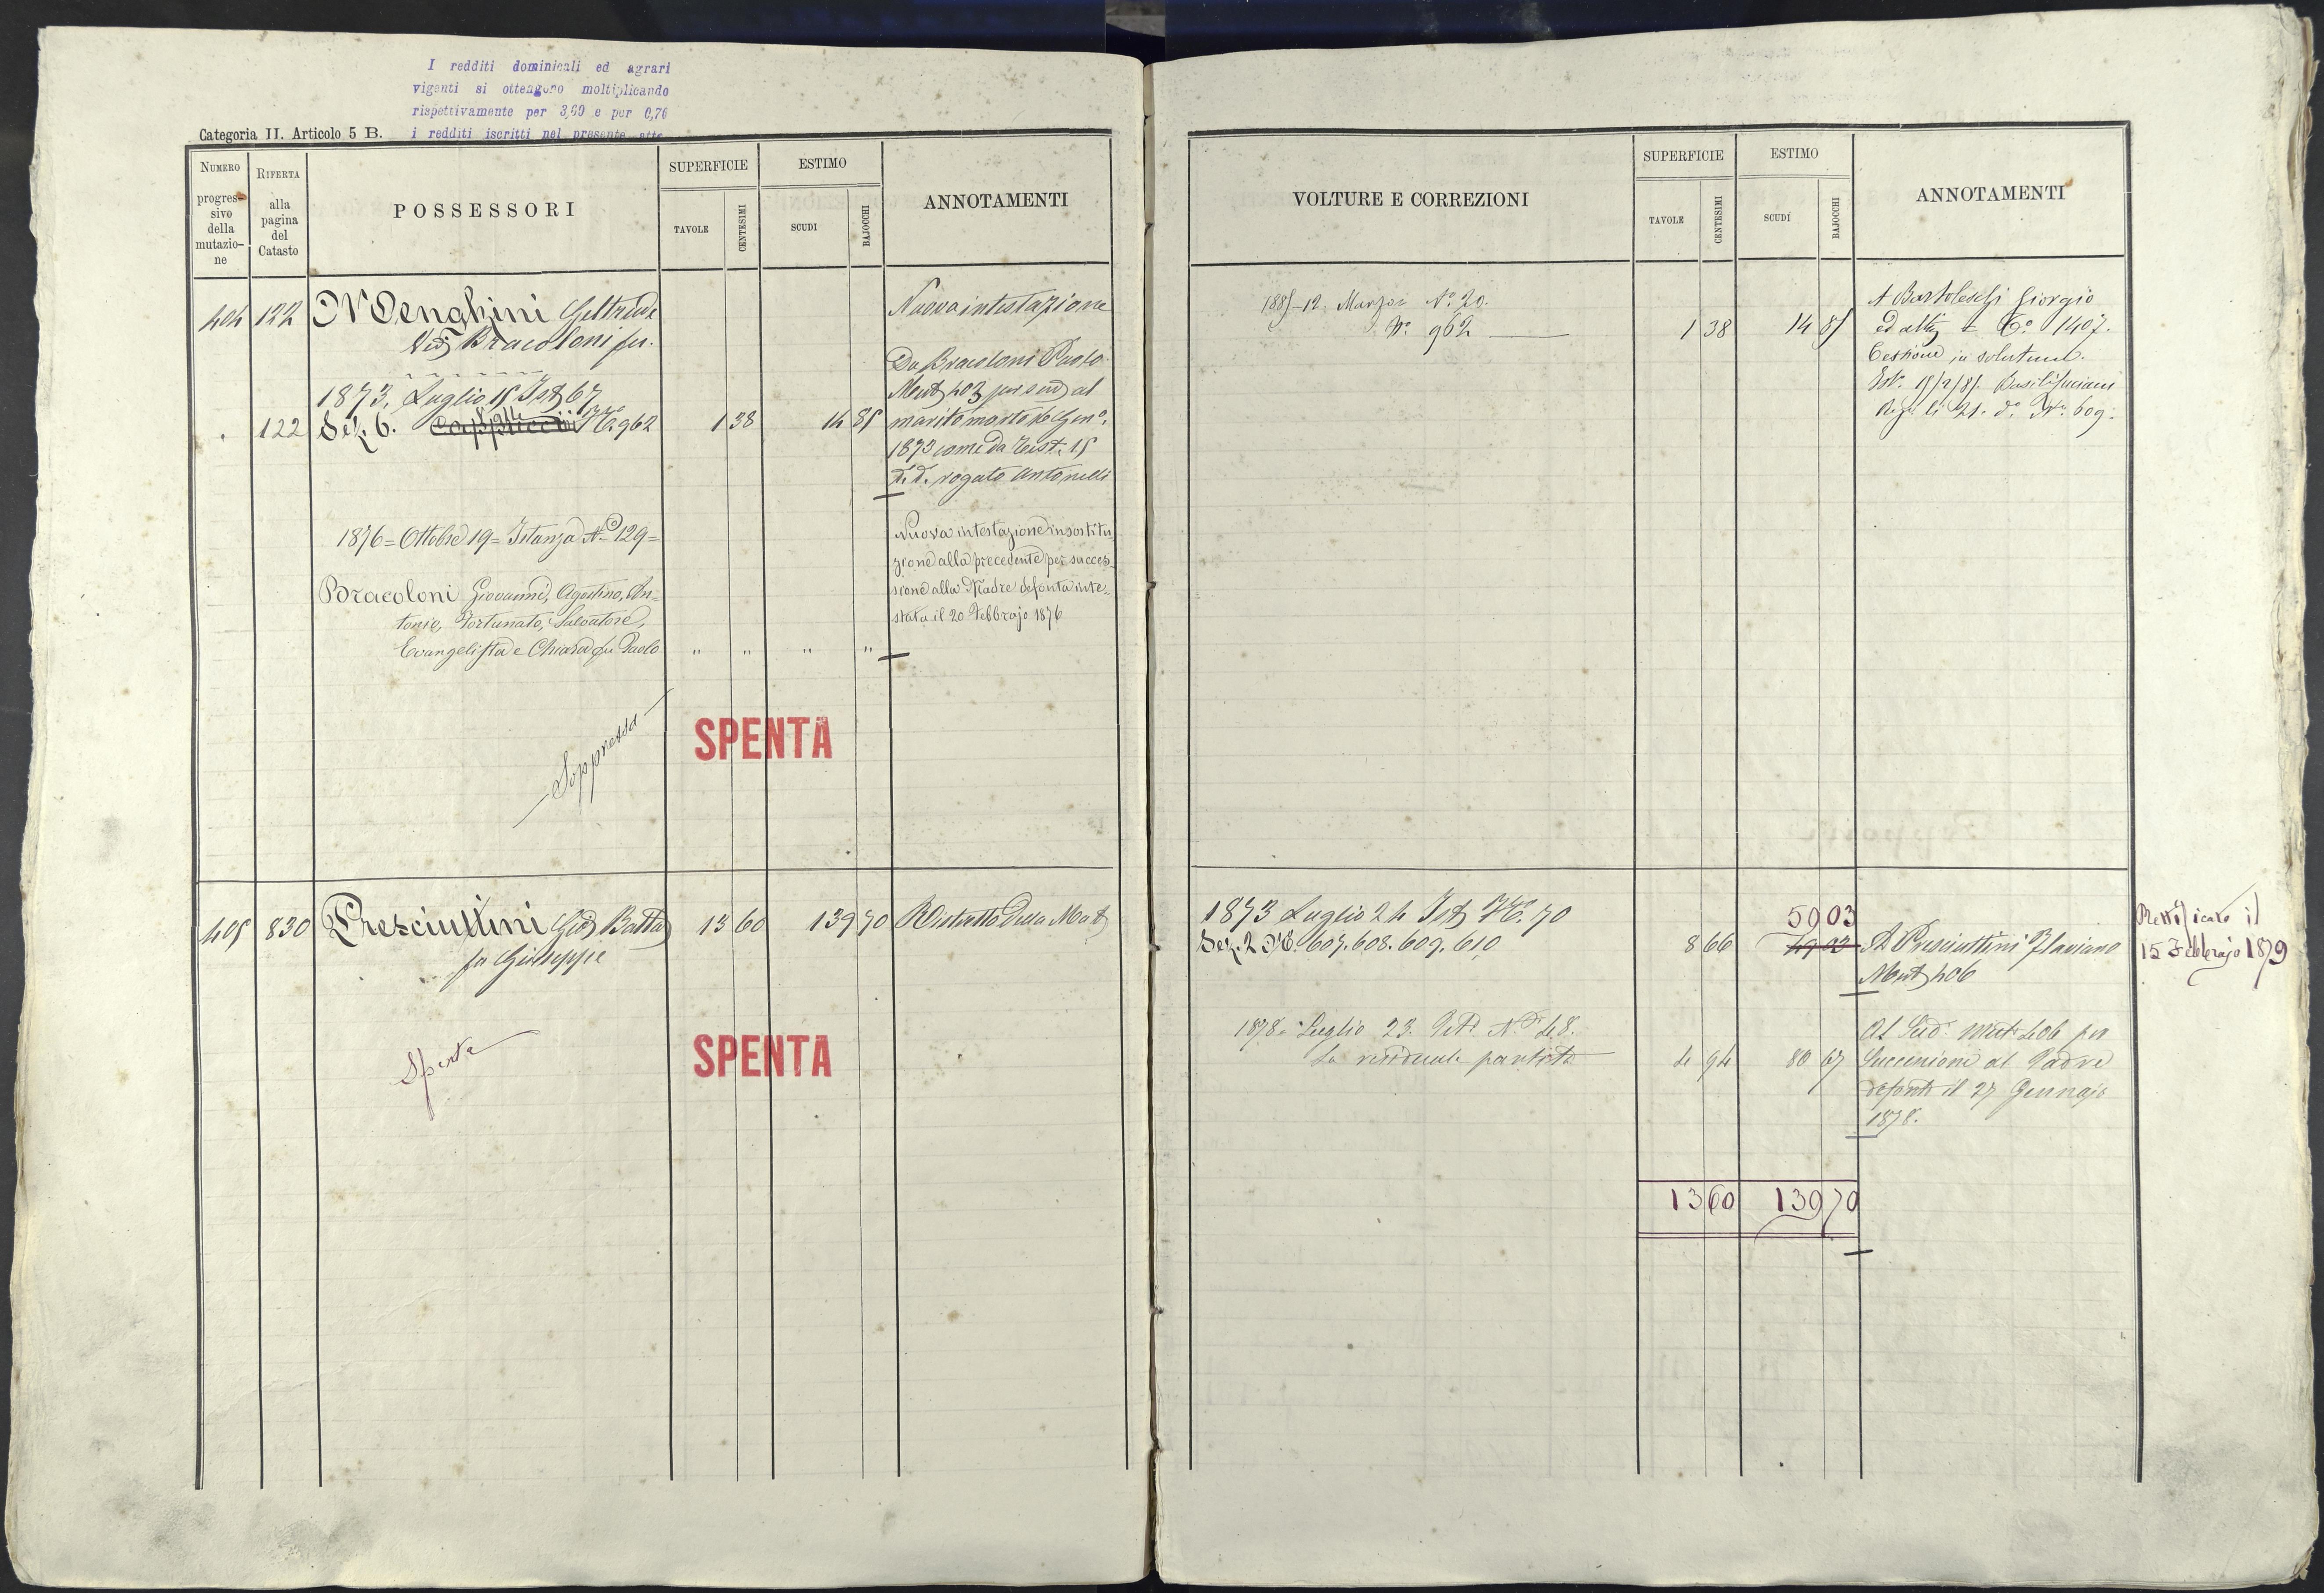 I redditi dominicali ed agrari
vigenti si ottengono moltiplicando
rispettivamente per 3,60 e per 0,76
i redditi iscritti nel presente atto
Categoria II. Articolo 5 B.
NUMERO progressivo della mutazione
RIFERTA alla pagina del Catasto
POSSESSORI
SUPERFICIE
TAVOLE
CENTESIMI
ESTIMO
SCUDI
BAJOCCHI
ANNOTAMENTI
404 122 Menghini Geltrude
Ved Bracoloni fu.
Nuova intestazione
1873. Luglio 15 Ist 67
122 Sez. 6. N. 962 1 38 14 85
Da Bracoloni Paolo
Mut 403 per al
marito morto Gen.
1873 come da Test. 15
d. d. rogato Antonelli
1876 = Ottobre 19 = Istanza No 129 =
Bracoloni Giovanni, Agostino, An=
tonio, Fortunato, Salvatore,
Evangelista e Chiara fu Paolo " " " "
Nuova intestazione in sostitu=
zione alla precedente per succes=
sione alla Madre defonta inte=
stata il 20 Febbrajo 1876
Soppressa
SPENTA
405 830 Presciuttini Gio Batta 13 60 139 70 Ristretto della Mat
fu Giuseppe
Spenta
SPENTA
VOLTURE E CORREZIONI
SUPERFICIE
TAVOLE
CENTESIMI
ESTIMO
SCUDI
BAJOCCHI
ANNOTAMENTI
1885-12. Marzo No. 20.
No. 962 1 38 14 85
A Bartoleschi Giorgio
ed altri 1407.
Cessione in solutum.
No. 609.
1873 Luglio 24 Ist No. 70
Sez. 2 N. 607. 608. 609. 610 8 66
59 03
49 03
A Presciuttini Flaviano
Mut 406
Rettificato il
15 Febbrajo 1879
1878. Luglio 23. No 48.
La residuale partita 4 94 80 67
Al Sud Mut 406 per
Successione al Padre
defonto il 27 Gennajo
1878.
13 60 139 70